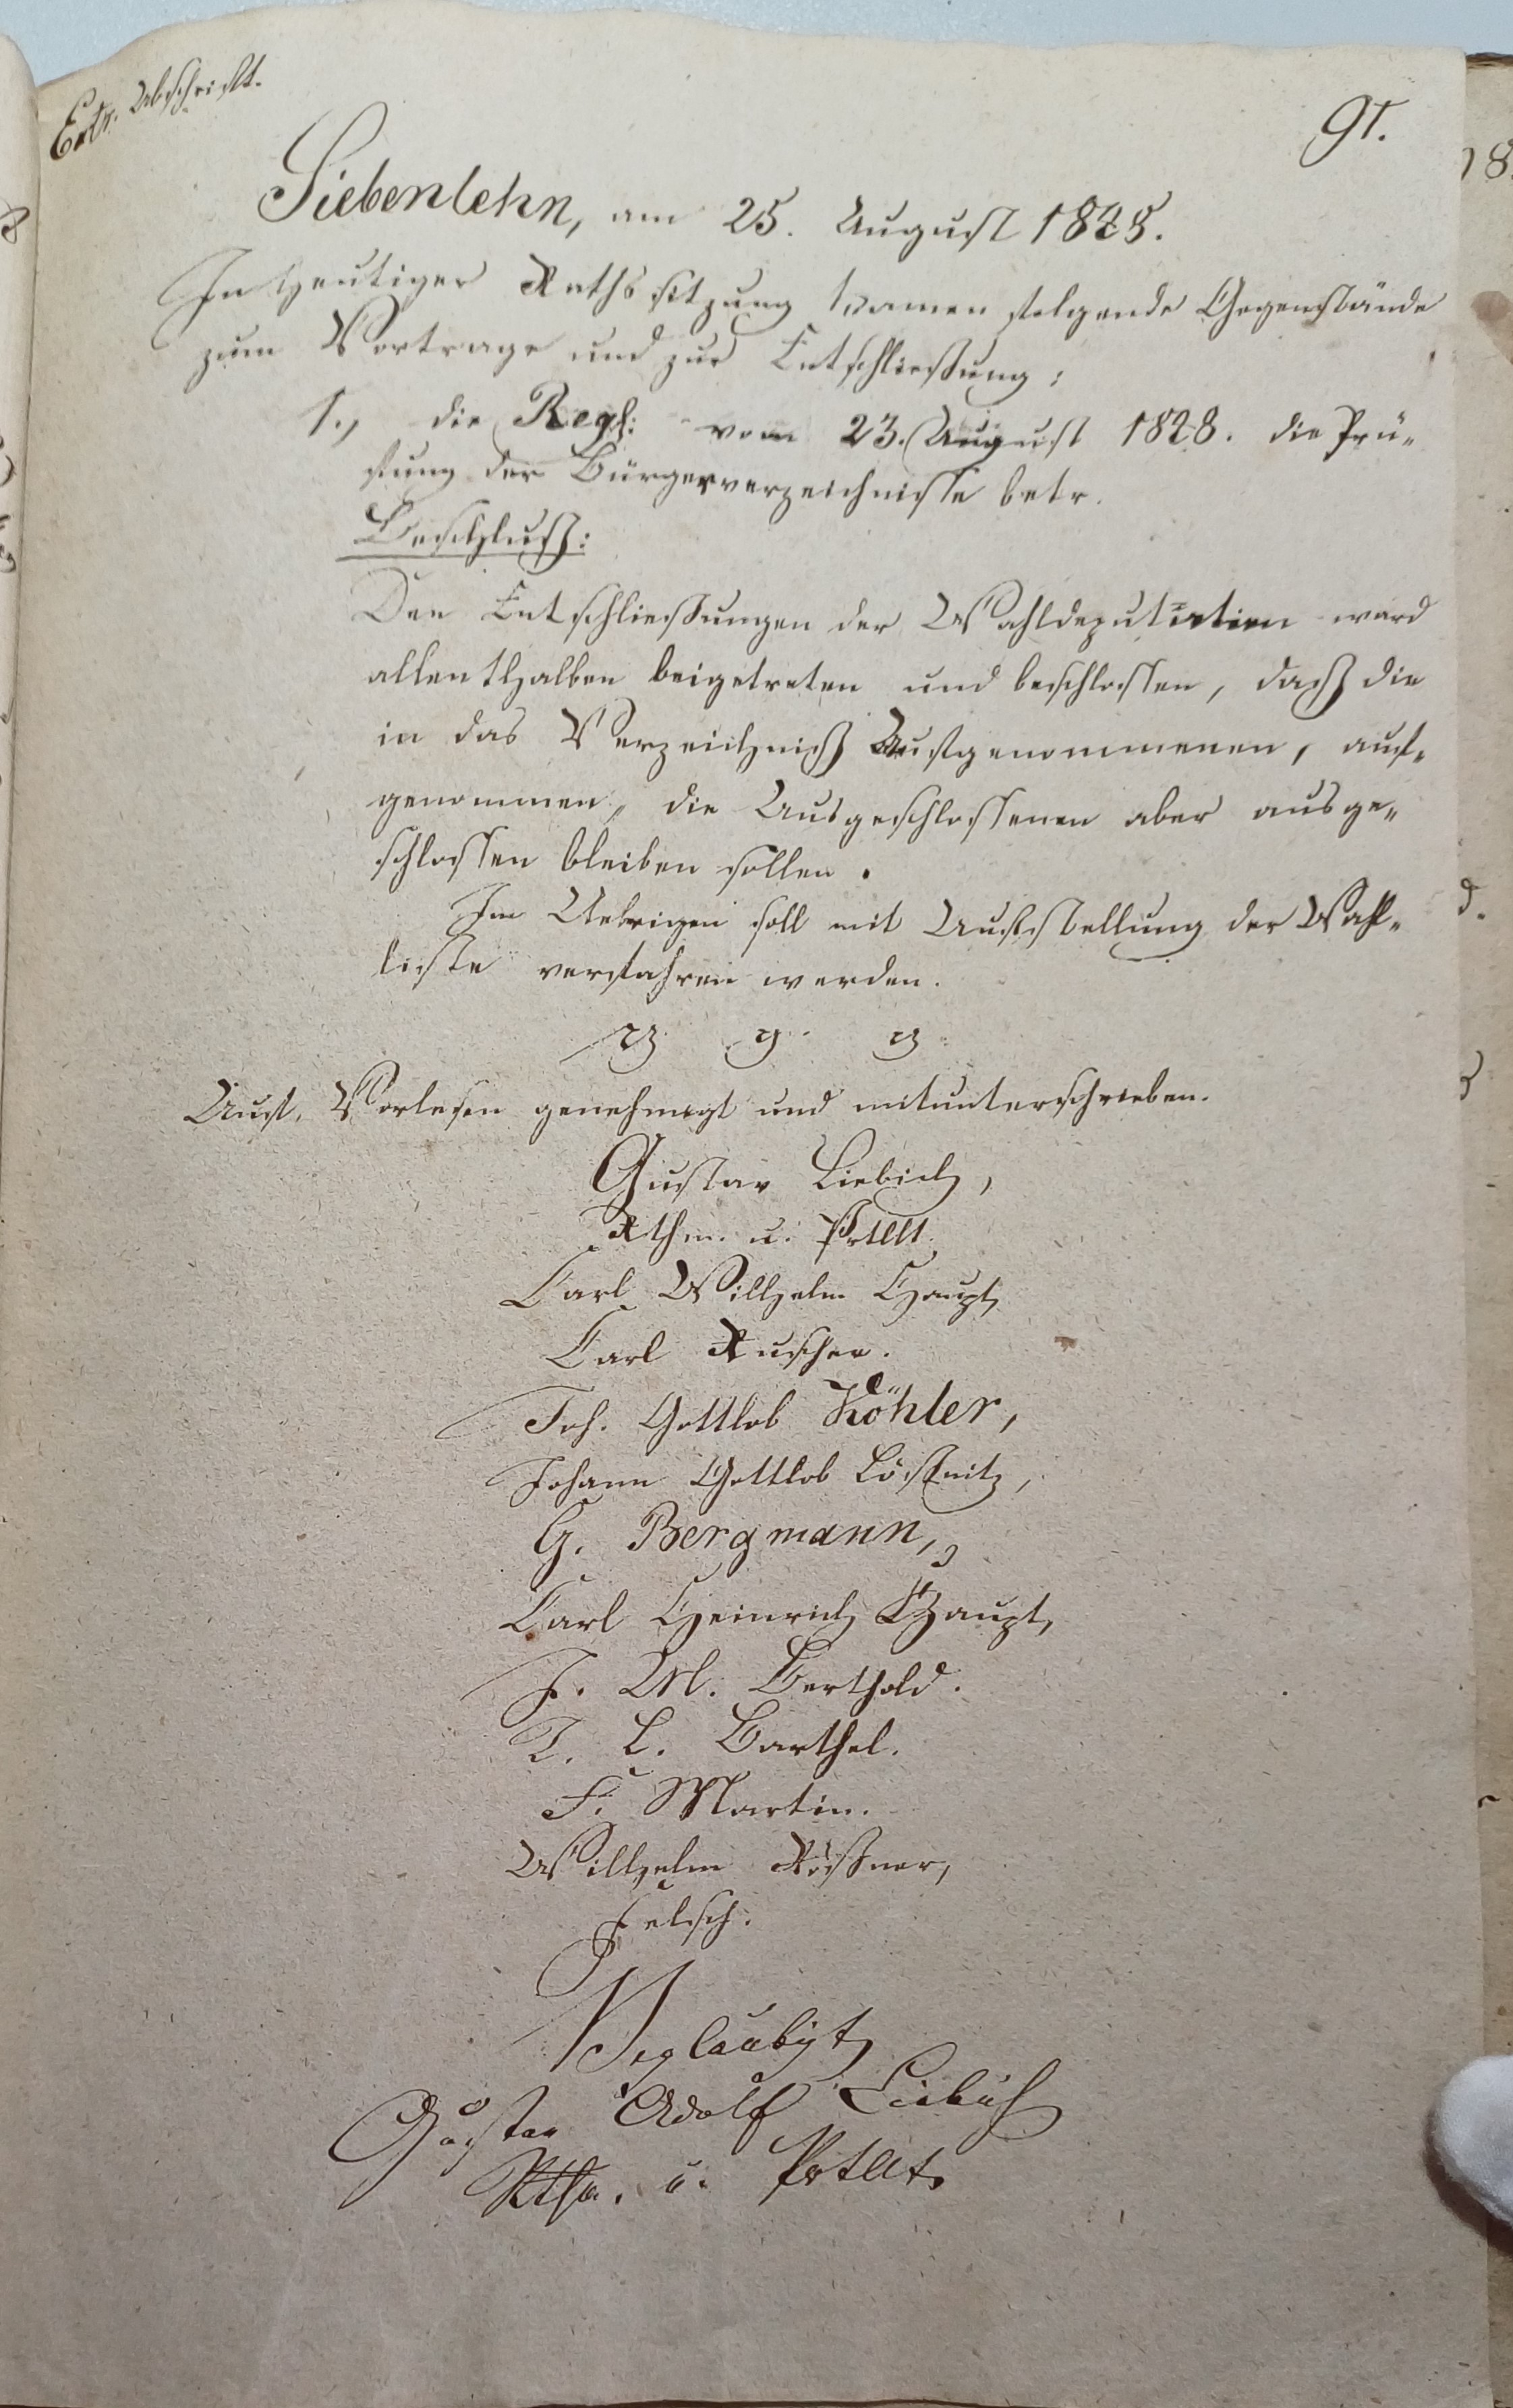 Extr. Abschrift.
91.
Siebenlehn, am 25. August 1828.
In heutiger Rathssitzung kamen folgende Gegenstände
zum Vortrage und zur Entschließung:
1., die vom 23. August 1828. die Prü-
fung der Bürgerverzeichnisse betr.
Beschluß:
Den Entschließungen der Wahldeputation ward
allenthalben beigetreten und beschlossen, daß die
in das Verzeichniß Aufgenommenen, auf-
genommen, die Ausgeschlossenen aber ausge-
schlossen bleiben sollen.
Im Uebrigen soll mit Aufstellung der Wahl-
liste verfahren werden.
Auf Vorlesen genehmigt und mitunterschrieben.
Gustav Liebich,
Rthm. u. Prtllt.
Carl Wilhelm Haupt,
Carl Ruscher.
Joh. Gottlob Köhler,
Johann Gottlob Lößnitz,
G. Bergmann,
Carl Heinrich Haupt,
J. M. Berthold.
T. L. Barthel.
F. Martin.
Wilhelm Rößner,
Felsch.
Beglaubigt,
Gustav Adolf Liebich
u. Prtllt.